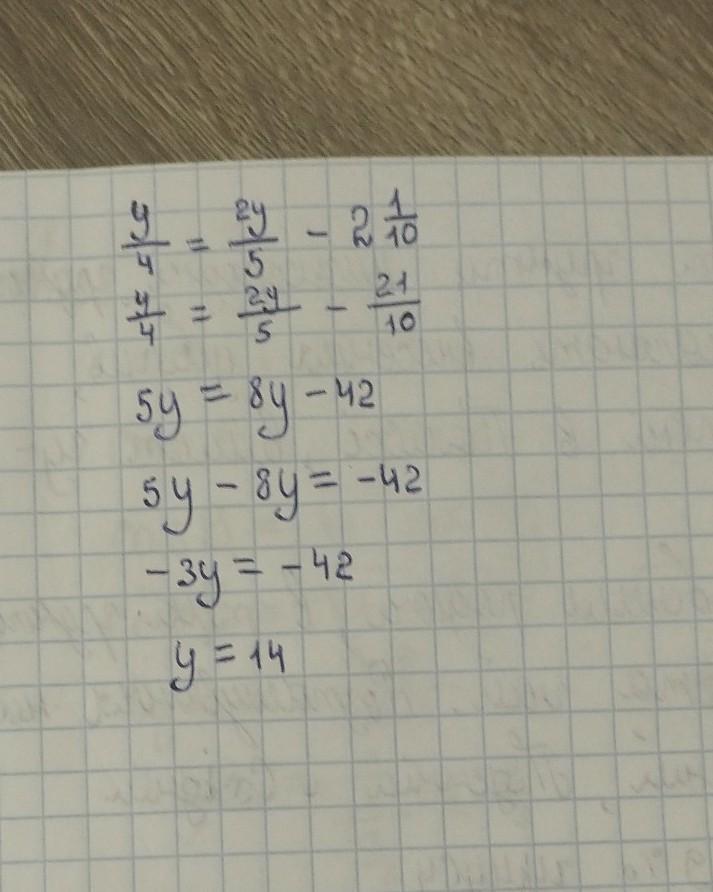 y/4 = 2y/5 - 2 1/10
y/4 = 2y/5 - 21/10
5y = 8y - 42
5y - 8y = -42
-3y = -42
y = 14